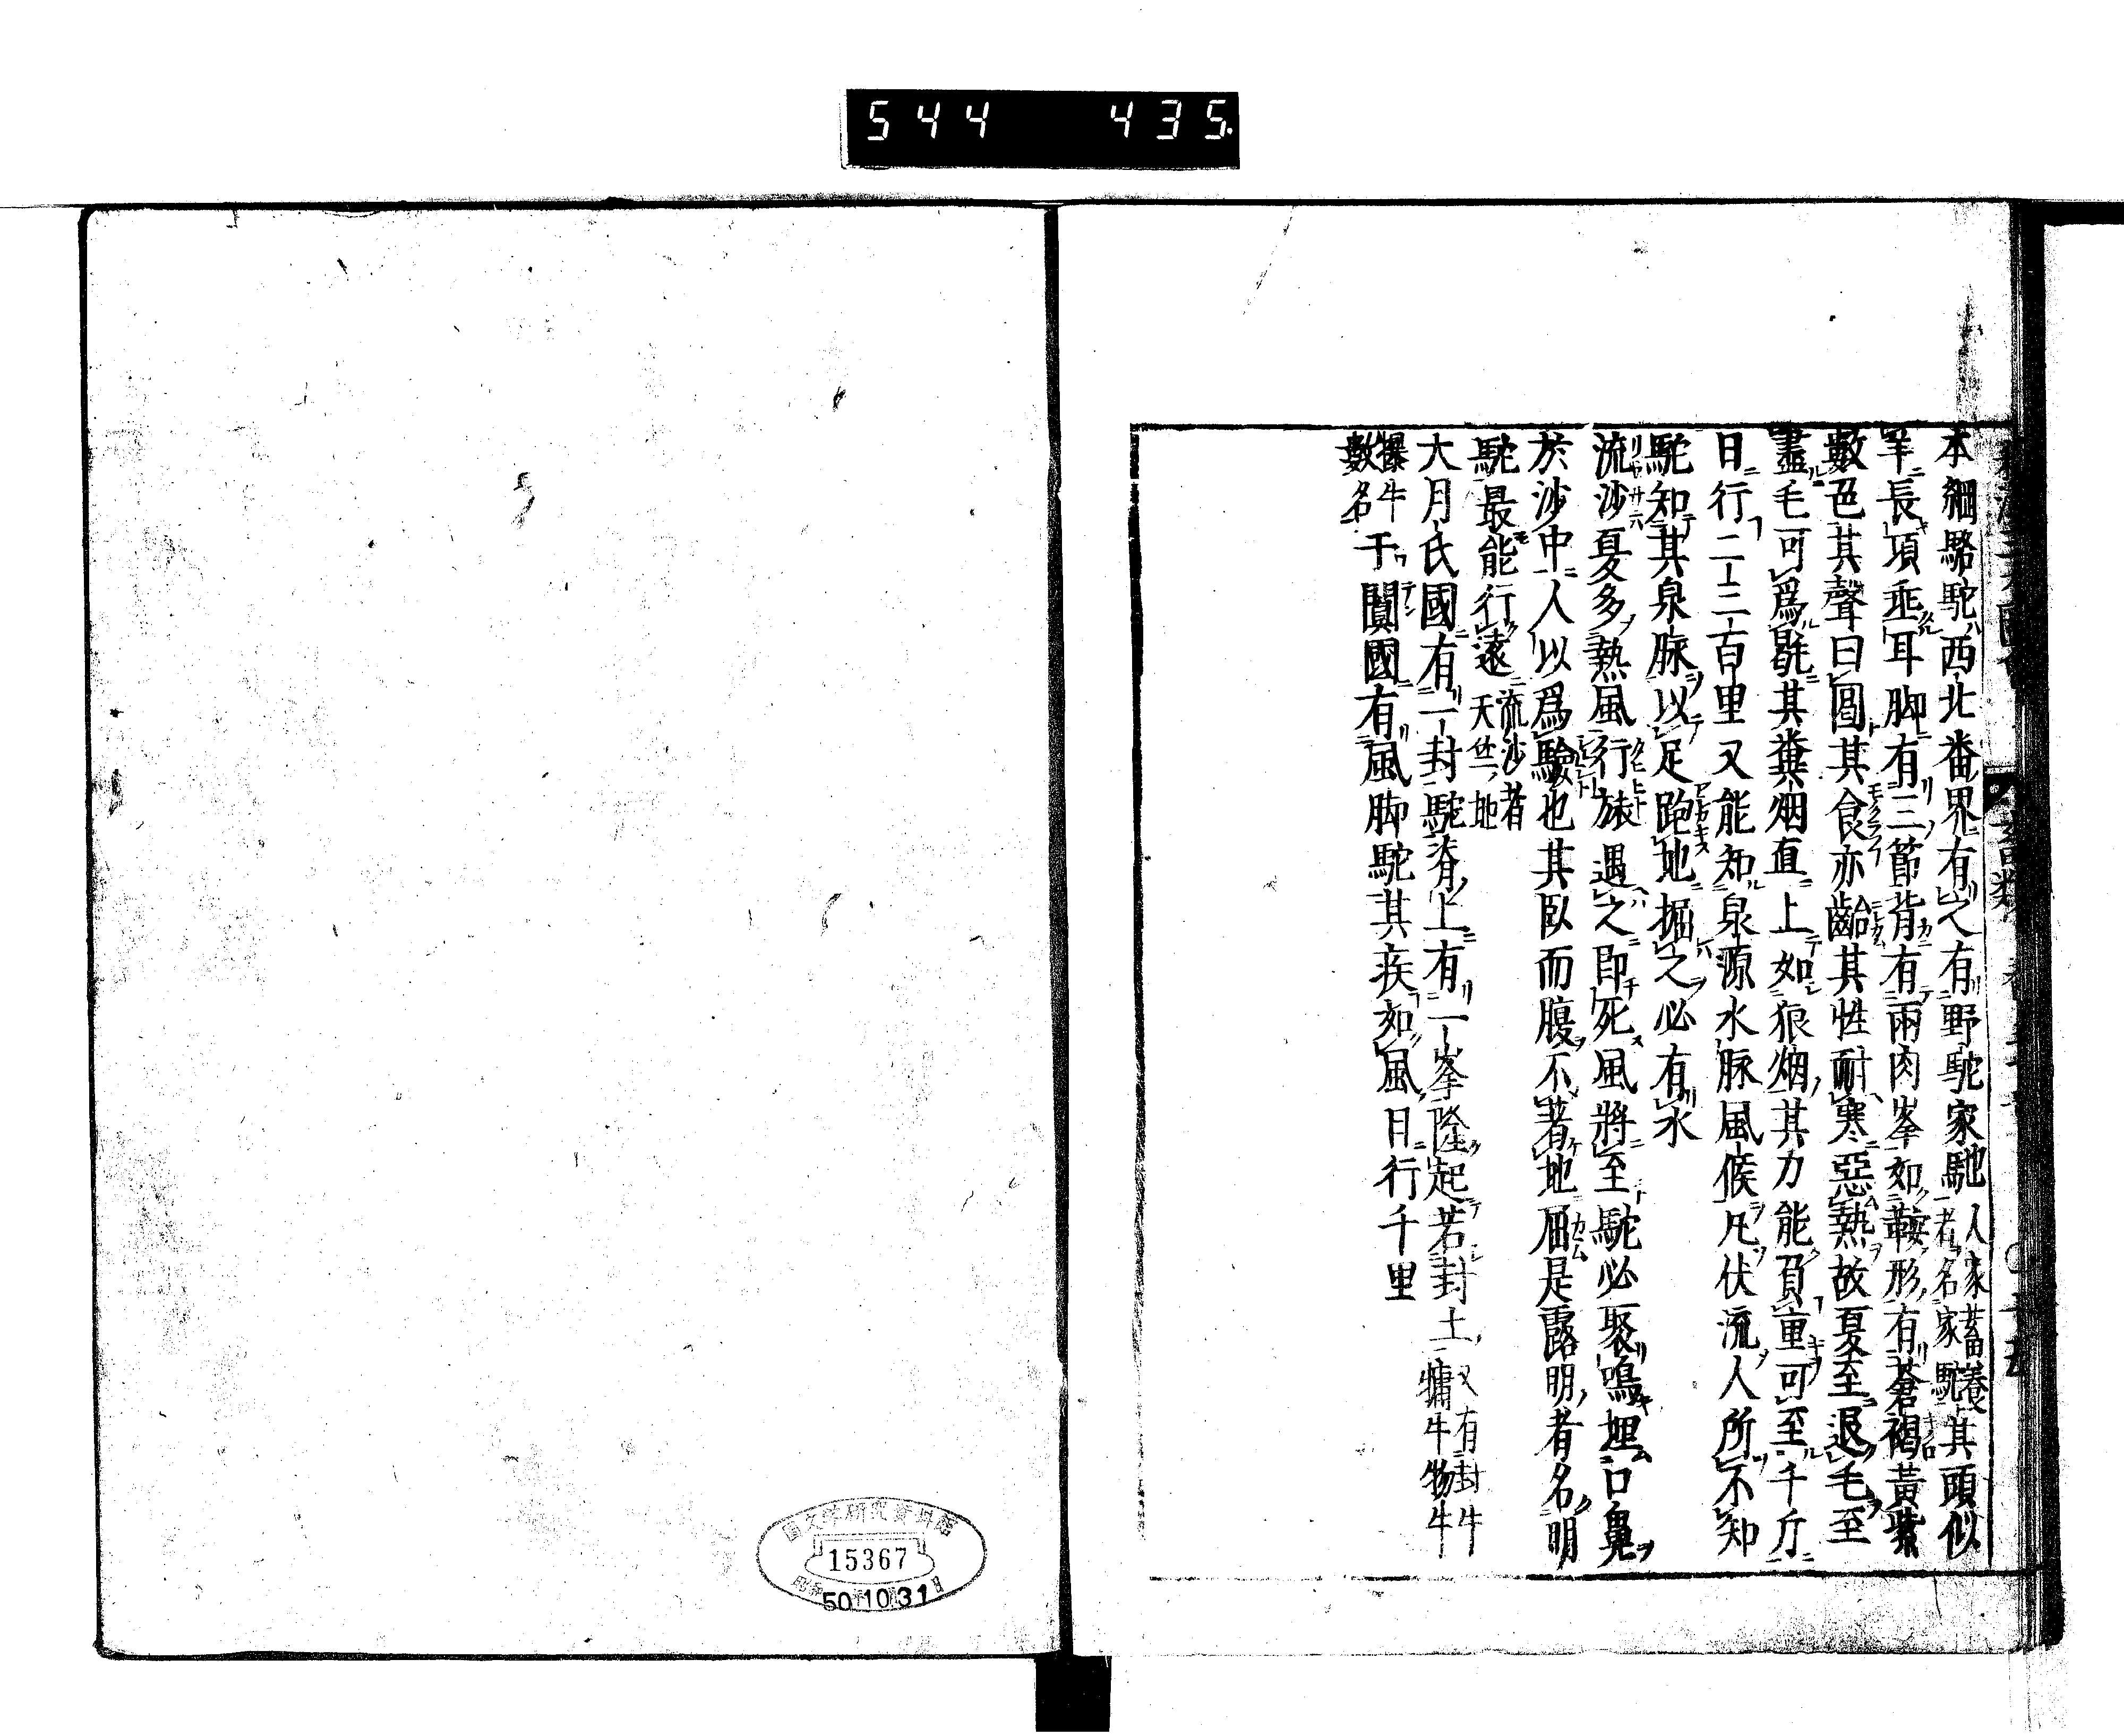 544 435
本綱駱駝西北畨界有之有野駝家馳人家畜養者名家駝其頭似
羊長項垂耳脚有三節背有兩肉峯如鞍形有蒼褐黃紫
數色其聲曰圓其食亦齝其性耐寒惡熱故夏至退毛至
盡毛可爲毼其糞烟直上如狼烟其力能負重可至千斤
日行二三百里又能知泉源水脉風候凡伏流人所不知
駝知其泉脉以足跑地掘之必有水
流沙夏多熱風行旅遇之即死風將至駝必聚鳴埋口鼻
於沙中人以爲驗也其臥而腹不著地屈是露明者名明
駝最能行遠流沙者天竺地
大月氏國有一封駝脊上有一峯隆起若封土又有封牛犎牛物牛
犦牛數名于闐國有風脚駝其疾如風日行千里
畜類
15367
50.10.31